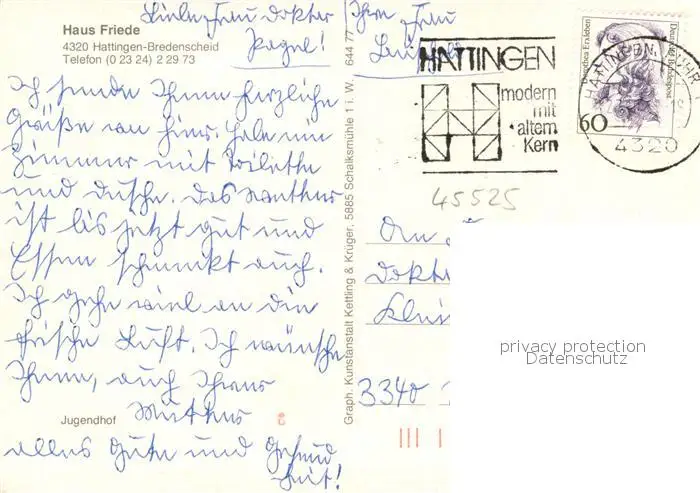 Liebe Frau Doktor
Ihre Frau
Haus Friede
4320 Hattingen-Bredenscheid
Telefon (0 23 24) 2 29 73
Ich sende Ihnen herzliche
Grüße von hier. Habe ein
Zimmer mit Toilette
und Dusche. Das Wetter
ist bis jetzt gut und
Essen schmeckt auch.
Ich gehe viel an die
frische Luft. Ich wünsche
Ihnen, auch Ihrer
Mutter
Jugendhof
alles Gute und Gesund
heit!
644 77
Graph. Kunstanstalt Kettling & Krüger, 5885 Schalksmühle 1 i. W.
HATTINGEN
modern
mit
altem
Kern
60
Deutsche Bundespost
HATTINGEN, RUHR
4320
45525
An
Doktor
3340
privacy protection
Datenschutz